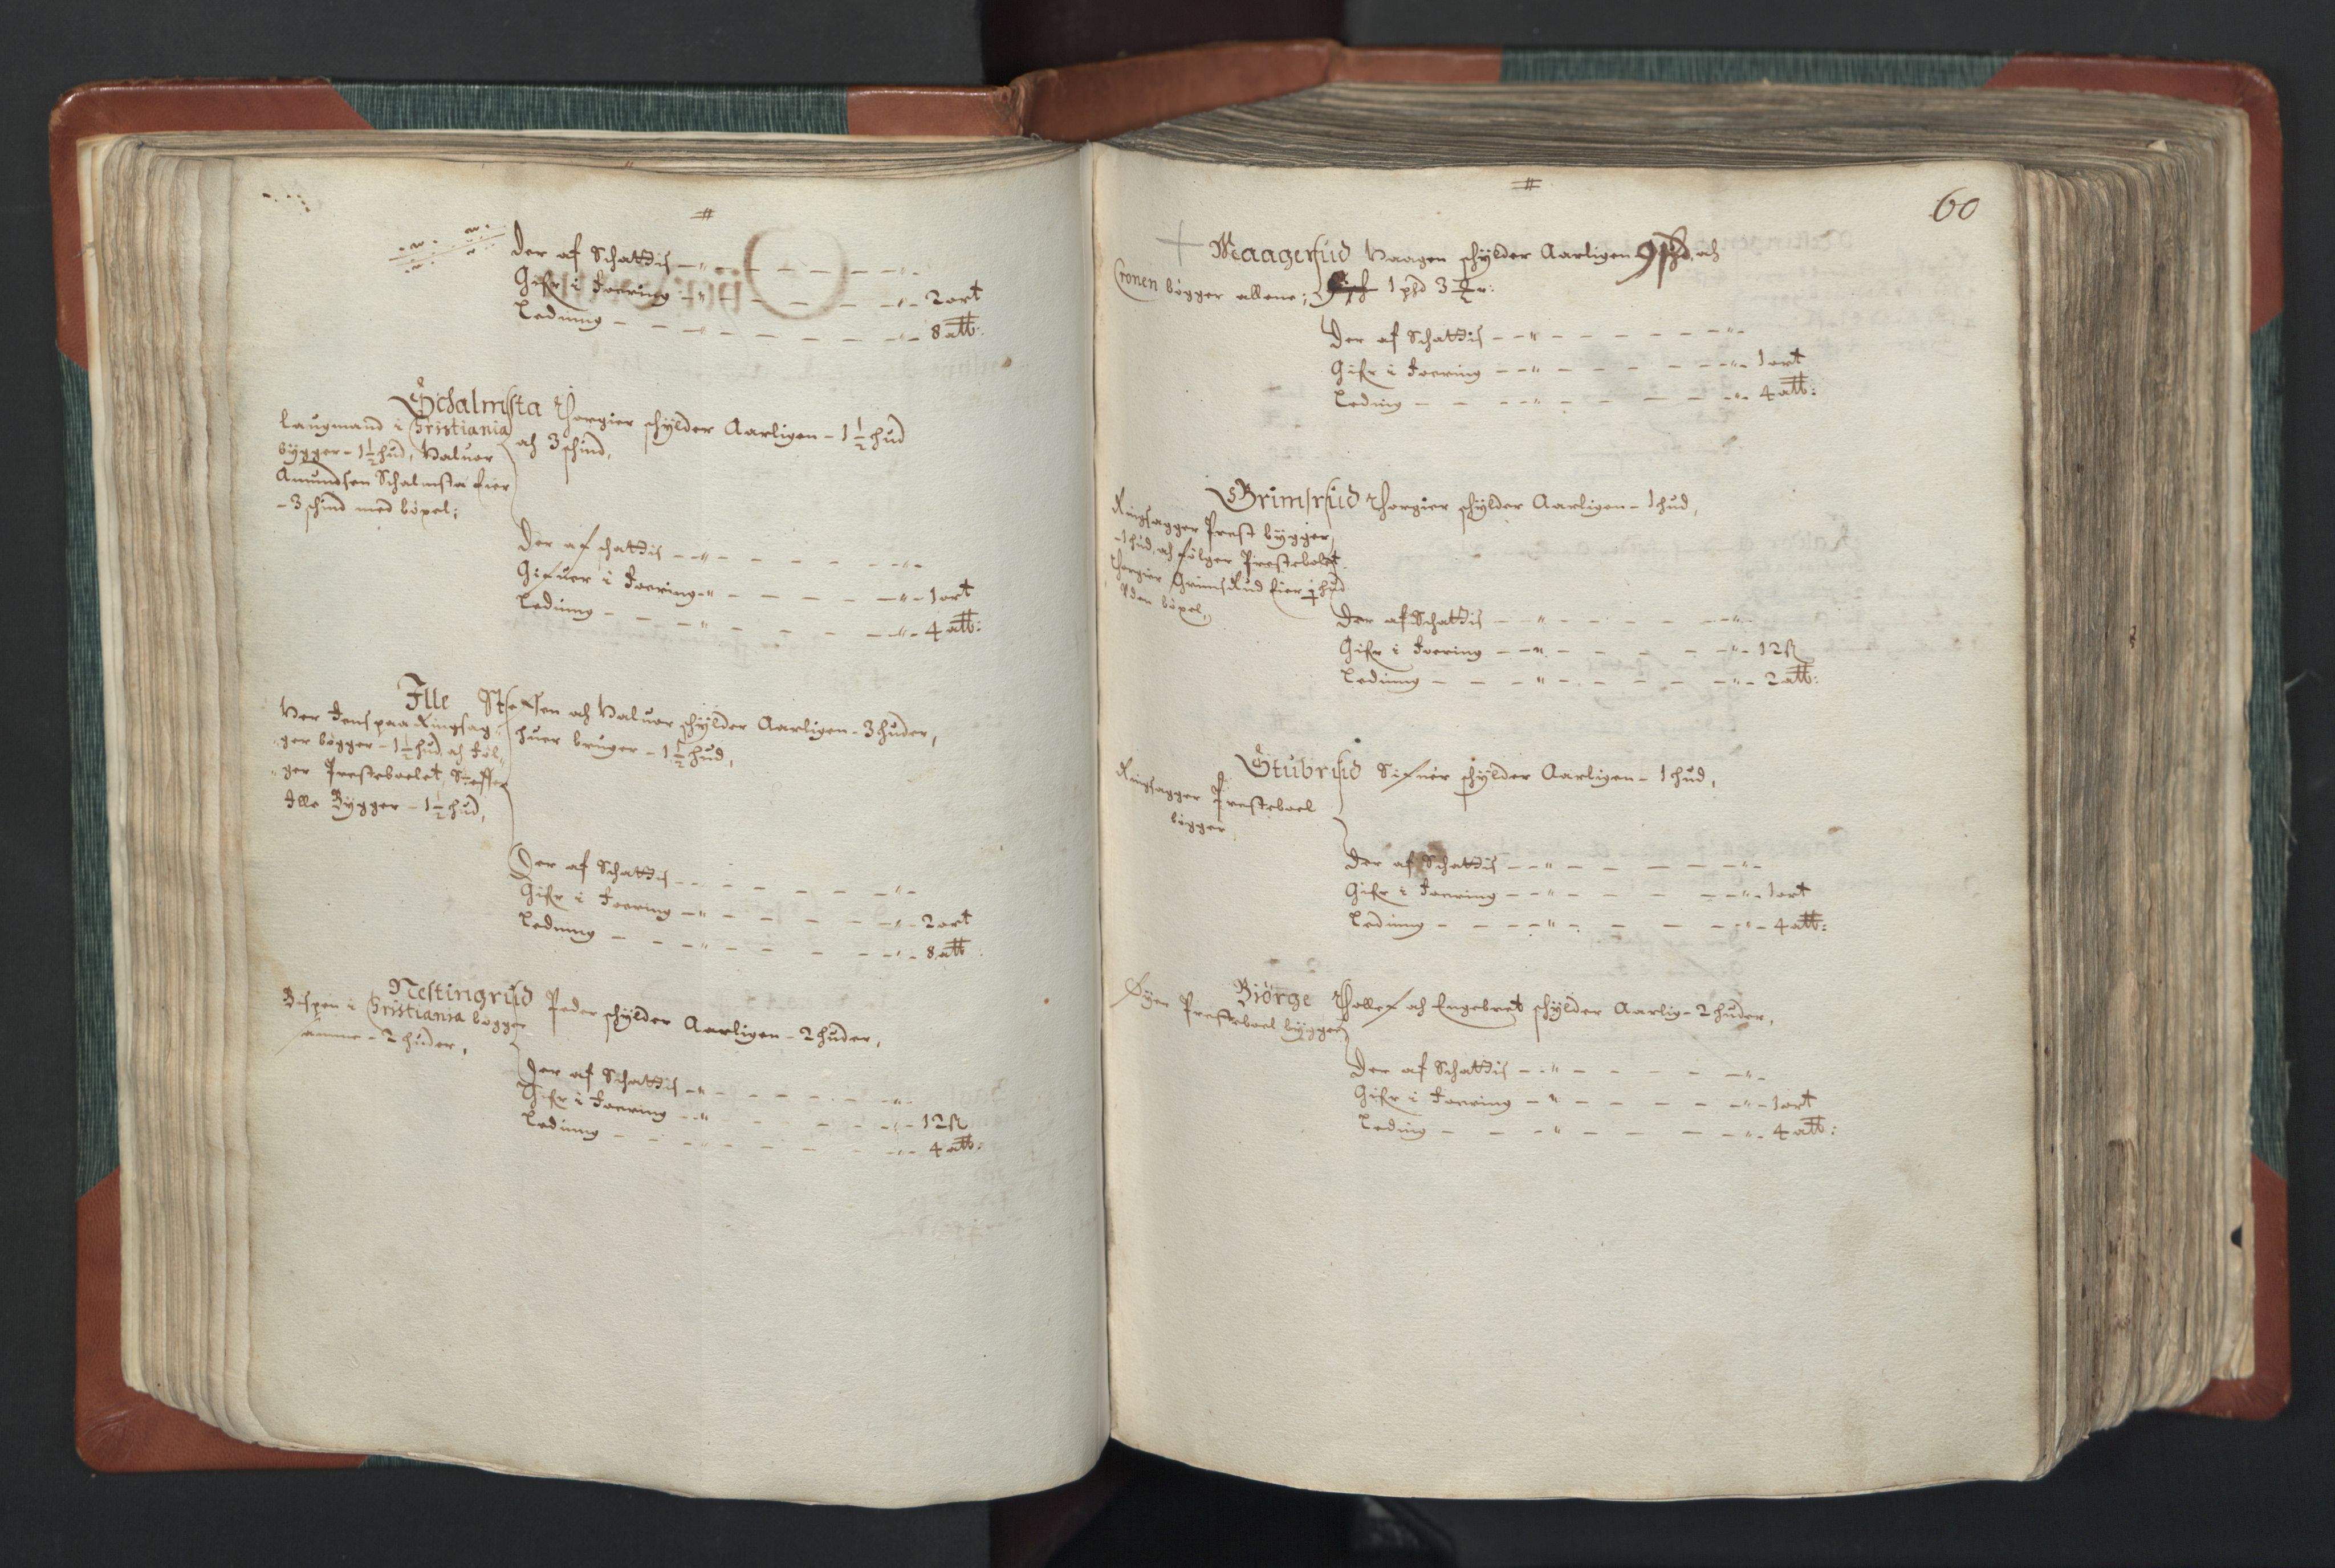 Der af Schattis
Gifr i Foering 2 ort
Leding 8 att:
Schalmsta Thorgier schÿlder Aarligen - 1½ hud
och 3 schind,
Laugmand i Christiania
bÿgger - 1½ hud, Haluor
Amundsen Schalmsta Eier
- 3 schind med böxel;
Der af schattis
Gifuer i Foering 1 ort
Leding 4 att:
Ille Steffen och Haluor schÿlder Aarligen - 3 huder,
huer bruger - 1½ hud,
Her Jens paa Ringsag-
ger bögger - 1½ hud, och föl-
ger Presteboelet, Steffen
Ille Bÿgger - 1½ hud,
Der af Schattis
Gifr i Foering 2 ort
Leding 8 att
Nestingrud Peder schÿlder Aarligen - 2 huder,
Bispen i Christiania bögger
- 2 huder,
Der af Schattis
Gifr i Foering 12 ß
Leding 4 att:
60
Maagerud Haagen schÿlder Aarligen och
Cronen bögger allene; 1 phd 3
Der af Schattis
Gifr i Foering 1 ort
Leding 4 att:
Grimsrud Thorgier schÿlder Aarligen - 1 hud,
Ringsagger Prest bÿgger
- 1 hud, och fölger Prestebolet.
Thorgier Grimsrud Eier hud
böxel,
Der af Schattis
Gifr i Foering 12 ß
Leding 2 att:
Stubrud Sifuer schÿlder Aarligen - 1 hud,
Ringsagger Presteboel
bögger
Der af Schattis
Gifr i Foering 1 ort
Leding 4 att:
Biörge Thollef och Engebret schÿlder Aarlig - 2 huder,
Öyer Presteboel bÿgger
Der af Schattis
Gifr i Foering 1 ort
Leding 4 att: